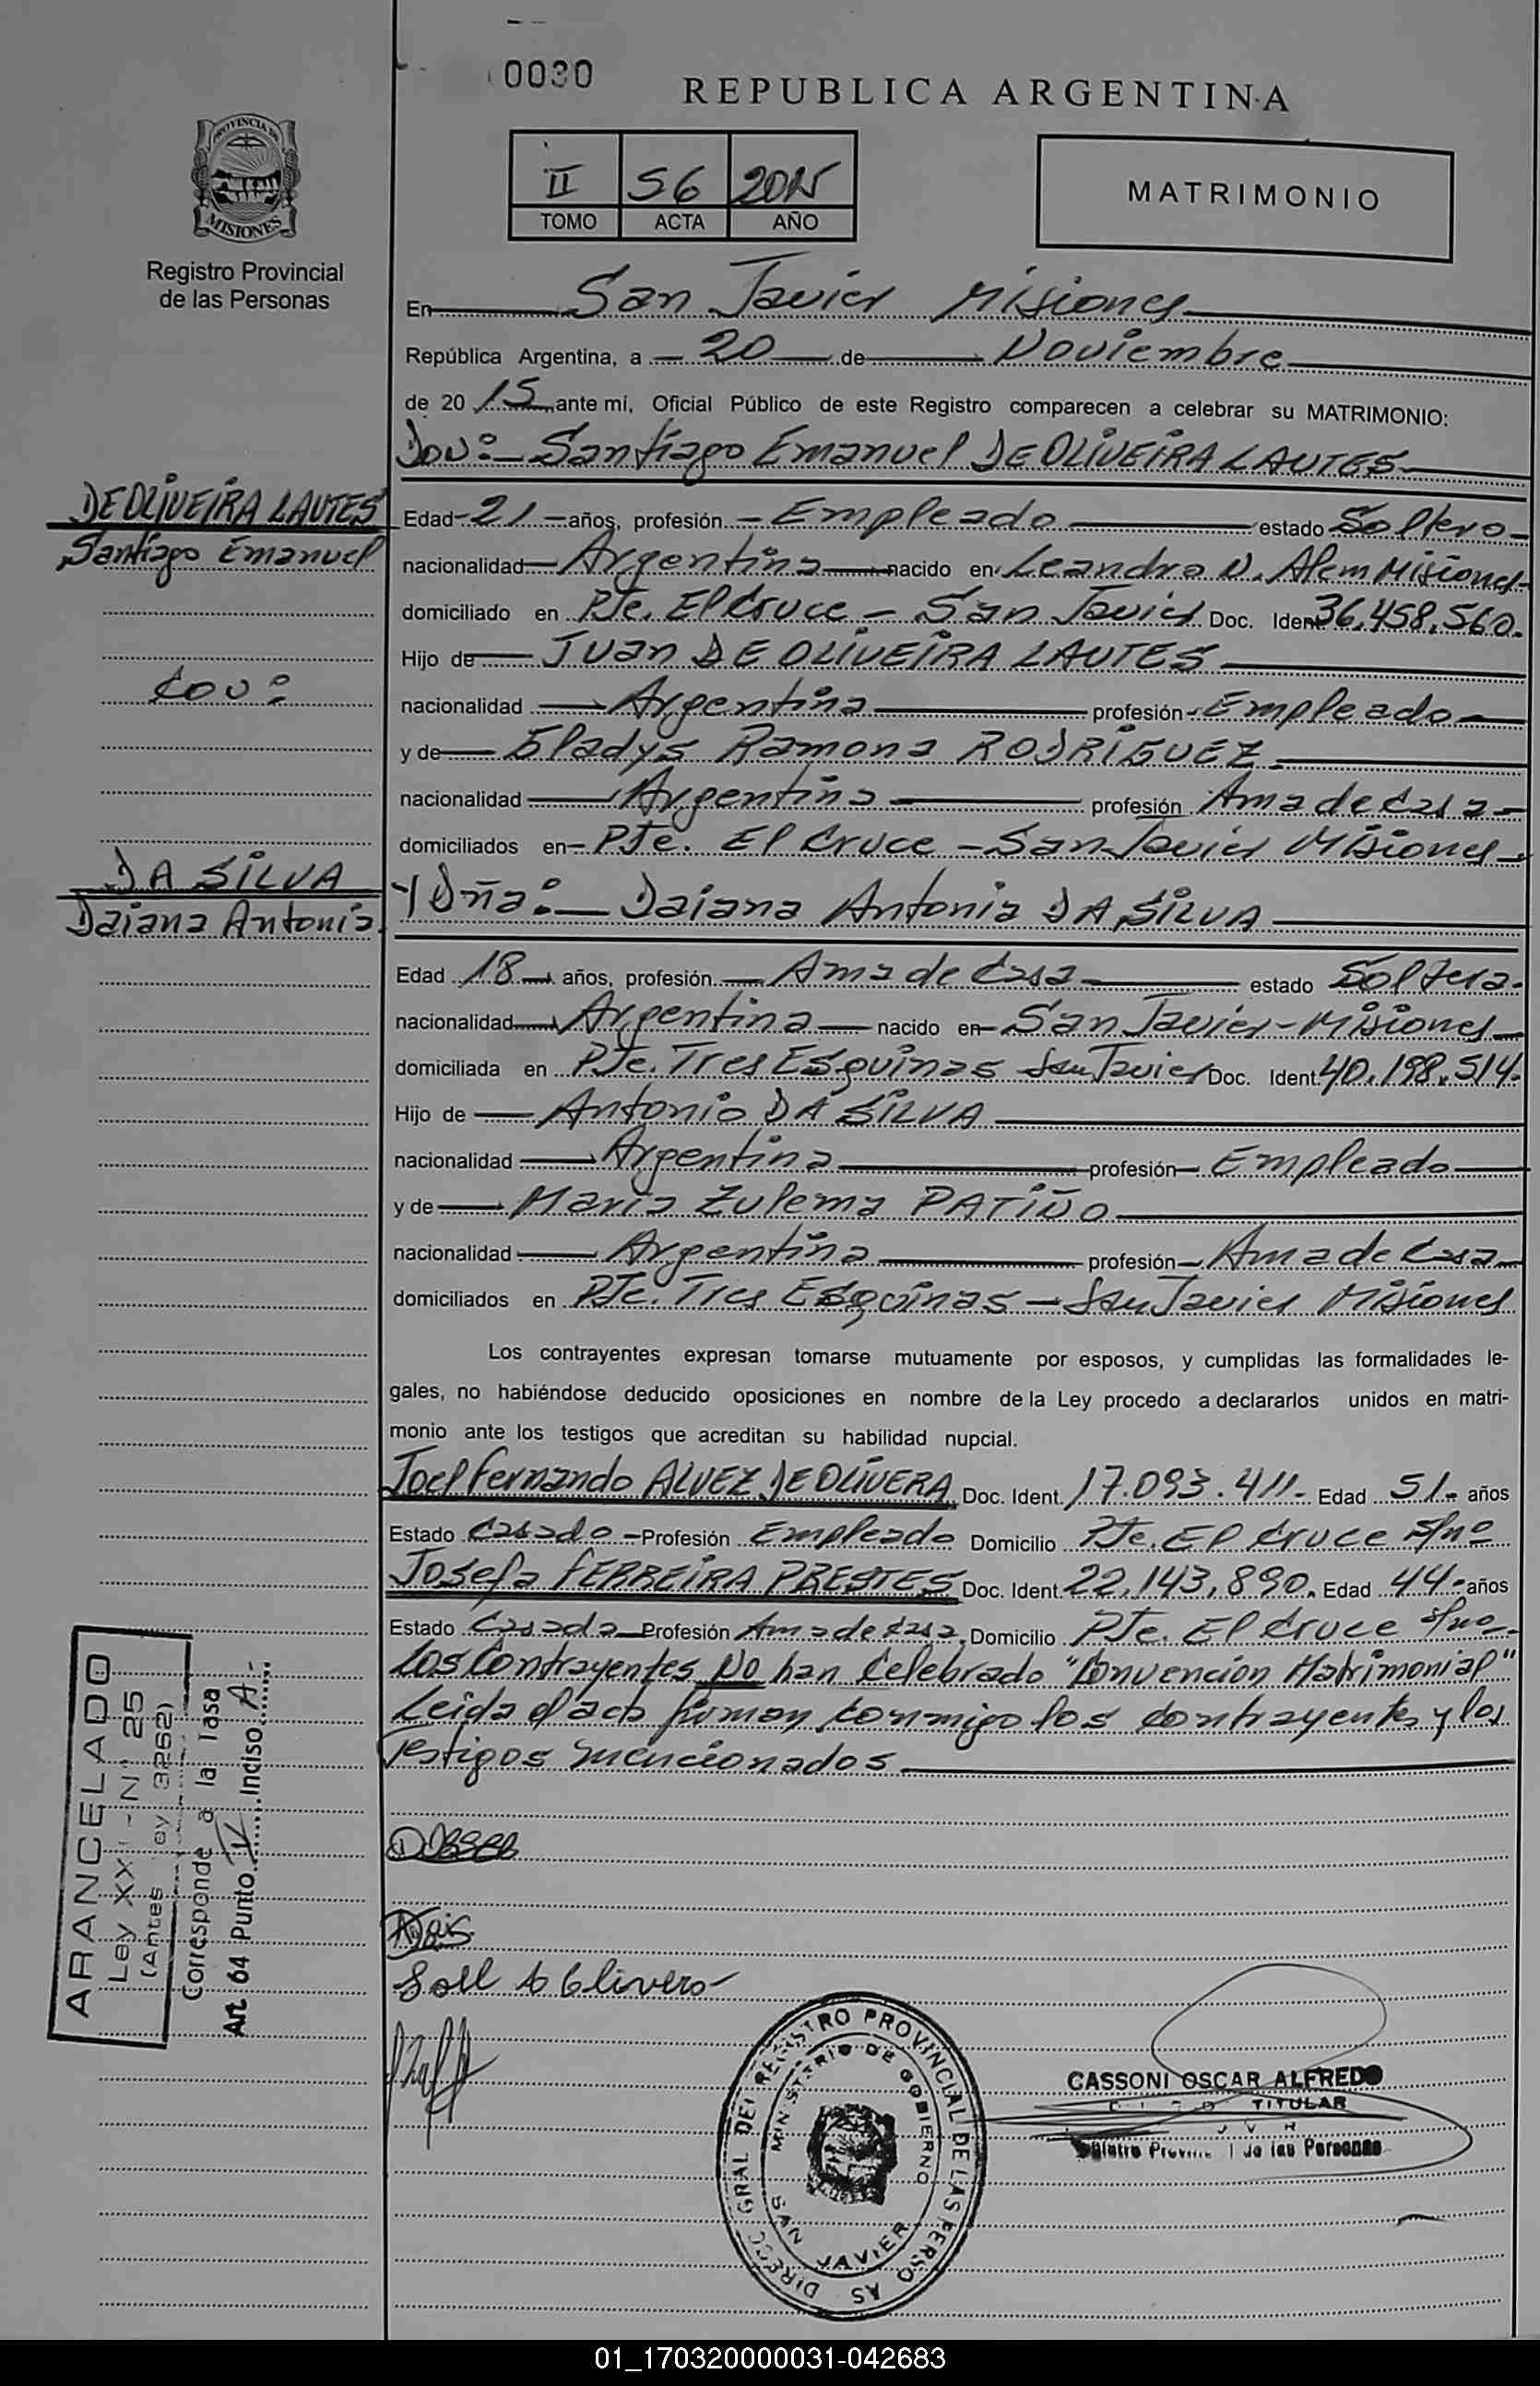 0030
REPUBLICA ARGENTINA
PROVINCIA DE
MISIONES
Registro Provincial
de las Personas
II 56 2015
TOMO ACTA AÑO
MATRIMONIO
En San Javier Misiones
República Argentina, a 20 de Noviembre
de 20 15 ante mi, Oficial Público de este Registro comparecen a celebrar su MATRIMONIO:
Don:- Santiago Emanuel DE OLIVEIRA LAUTES
DE OLIVEIRA LAUTES
Santiago Emanuel
Edad 21 años, profesión Empleado estado Soltero
nacionalidad Argentina nacido en Leandro N. Alem Misiones
domiciliado en Pje. El Cruce - San Javier Doc. Ident. 36.458.560.
Hijo de Juan DE OLIVEIRA LAUTES
con:
nacionalidad Argentina profesión Empleado
y de Gladys Ramona RODRIGUEZ.
nacionalidad Argentina profesión Ama de Casa
domiciliados en Pje. El Cruce - San Javier Misiones
DA SILVA
Daiana Antonia
Y Dña:- Daiana Antonia DA SILVA
Edad 18 años, profesión Ama de Casa estado Soltera.
nacionalidad Argentina nacido en San Javier - Misiones
domiciliada en Pje. Tres Esquinas San Javier Doc. Ident. 40.198.514.
Hijo de Antonio DA SILVA
nacionalidad Argentina profesión Empleado
y de Maria Zulema PATIÑO
nacionalidad Argentina profesión Ama de Casa
domiciliados en Pje. Tres Esquinas - San Javier Misiones
Los contrayentes expresan tomarse mutuamente por esposos, y cumplidas las formalidades le-
gales, no habiéndose deducido oposiciones en nombre de la Ley procedo a declararlos unidos en matri-
monio ante los testigos que acreditan su habilidad nupcial.
Joel Fernando ALVEZ DE OLIVERA Doc. Ident. 17.093.411. Edad 51. años
Estado Casado Profesión Empleado Domicilio Pje. El Cruce s/nº
Josefa FERREIRA PRESTES Doc. Ident. 22.143.890. Edad 44. años
Estado Casada Profesión Ama de Casa. Domicilio Pje. El Cruce s/nº
Los Contrayentes No han Celebrado "Convención Matrimonial"
Leida el acta firman conmigo los contrayentes y los
Testigos mencionados
ARANCELADO
Ley XX - N° 25
(Antes ey 3262)
Corresponde a la Tasa
Art. 64 Punto IV Inciso A
DIRECC GRAL DEL REGISTRO PROVINCIAL DE LAS PERSO AS
MINISTERIO DE GOBIERNO
SAN JAVIER
CASSONI OSCAR ALFREDO
TITULAR
de las Personas
01_170320000031-042683